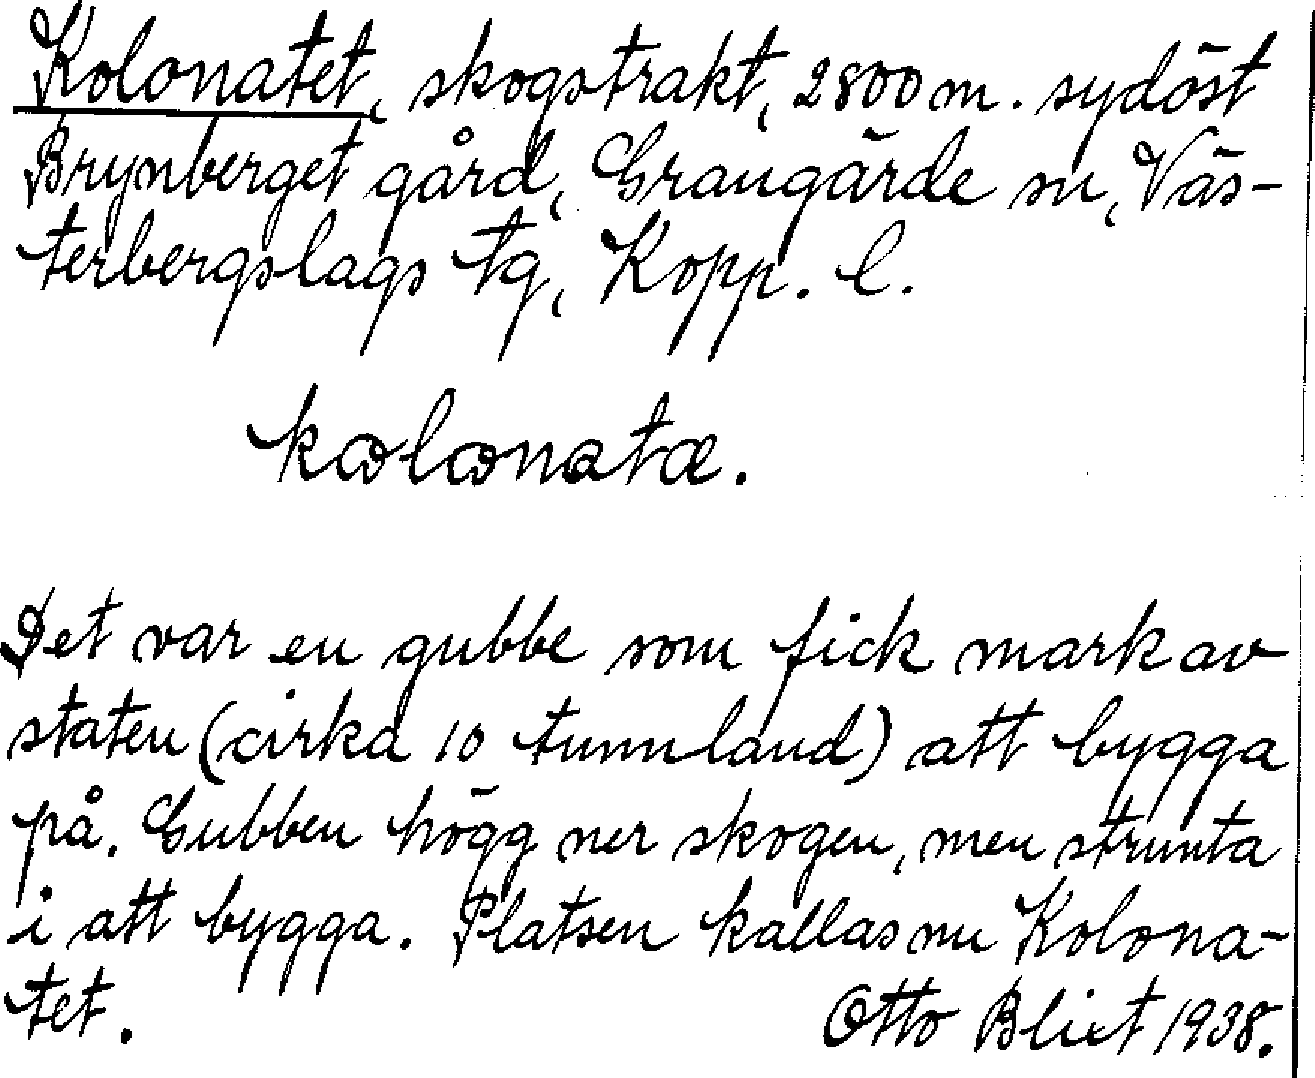 Kolonatet, skogstrakt, 2800 m. sydöst
Brynberget gård, Grangärde sn, Väs-
terbergslags tg, Kopp. l.
kωlωnatæ.
Det var en gubbe som fick mark av
staten (cirka 10 tunnland) att bygga
på. Gubben högg ner skogen, men strunta
i att bygga. Platsen kallas nu Kolona-
tet.
Otto Blixt 1938.